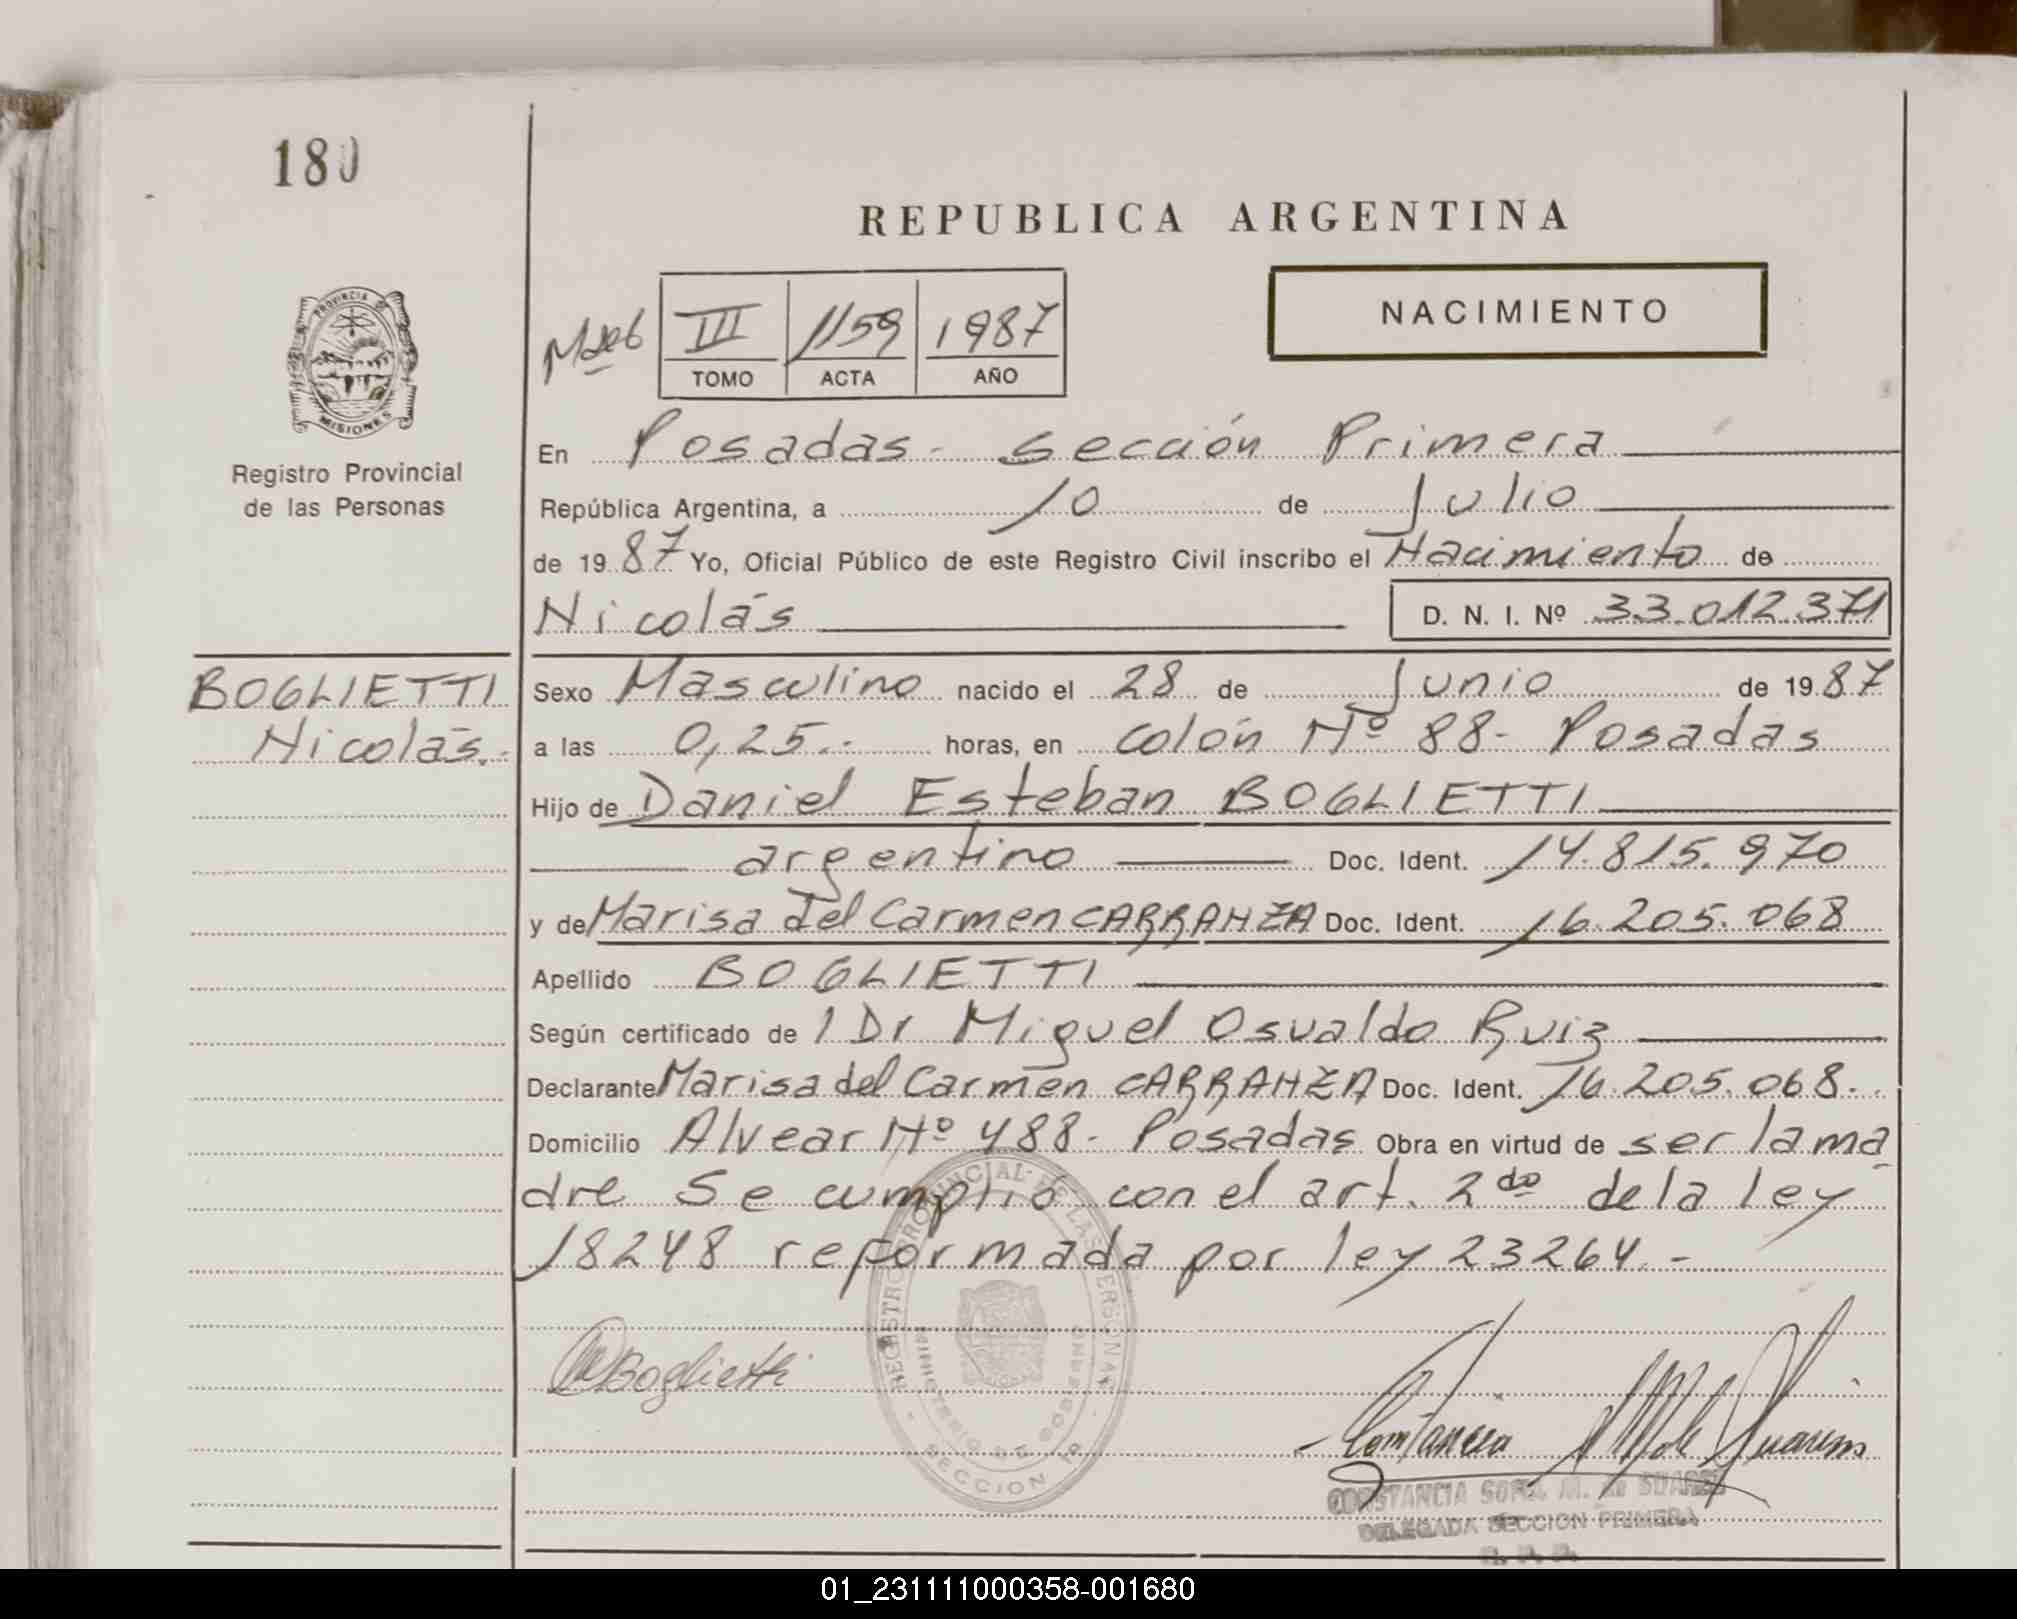 180
REPUBLICA ARGENTINA
NACIMIENTO
III 1159 1987
TOMO ACTA AÑO
PROVINCIA DE
MISIONES
Registro Provincial
de las Personas
En Posadas - Sección Primera
República Argentina, a 10 de Julio
de 1987 Yo, Oficial Público de este Registro Civil inscribo el Nacimiento de
Nicolás D. N. I. Nº 33.012.371
BOGLIETTI
Nicolás.-
Sexo Masculino nacido el 28 de Junio de 1987
a las 0,25.- horas, en Colón Nº 88- Posadas
Hijo de Daniel Esteban BOGLIETTI
argentino Doc. Ident. 14.815.970
y de Marisa del Carmen CARRANZA Doc. Ident. 16.205.068
Apellido BOGLIETTI
Según certificado de 1 Dr Miguel Osvaldo Ruiz
Declarante Marisa del Carmen CARRANZA Doc. Ident. 16.205.068.-
Domicilio Alvear Nº 488- Posadas Obra en virtud de ser la ma
dre Se cumplió con el art. 2do de la ley
18248 reformada por ley 23264.-
Boglietti
REGISTRO PROVINCIAL DE LAS PERSONAS
MINISTERIO DE GOBIERNO
SECCION 1ª
Constancia M de Suarez
CONSTANCIA SOFIA M. de SUAREZ
DELEGADA SECCION PRIMERA
01_231111000358-001680